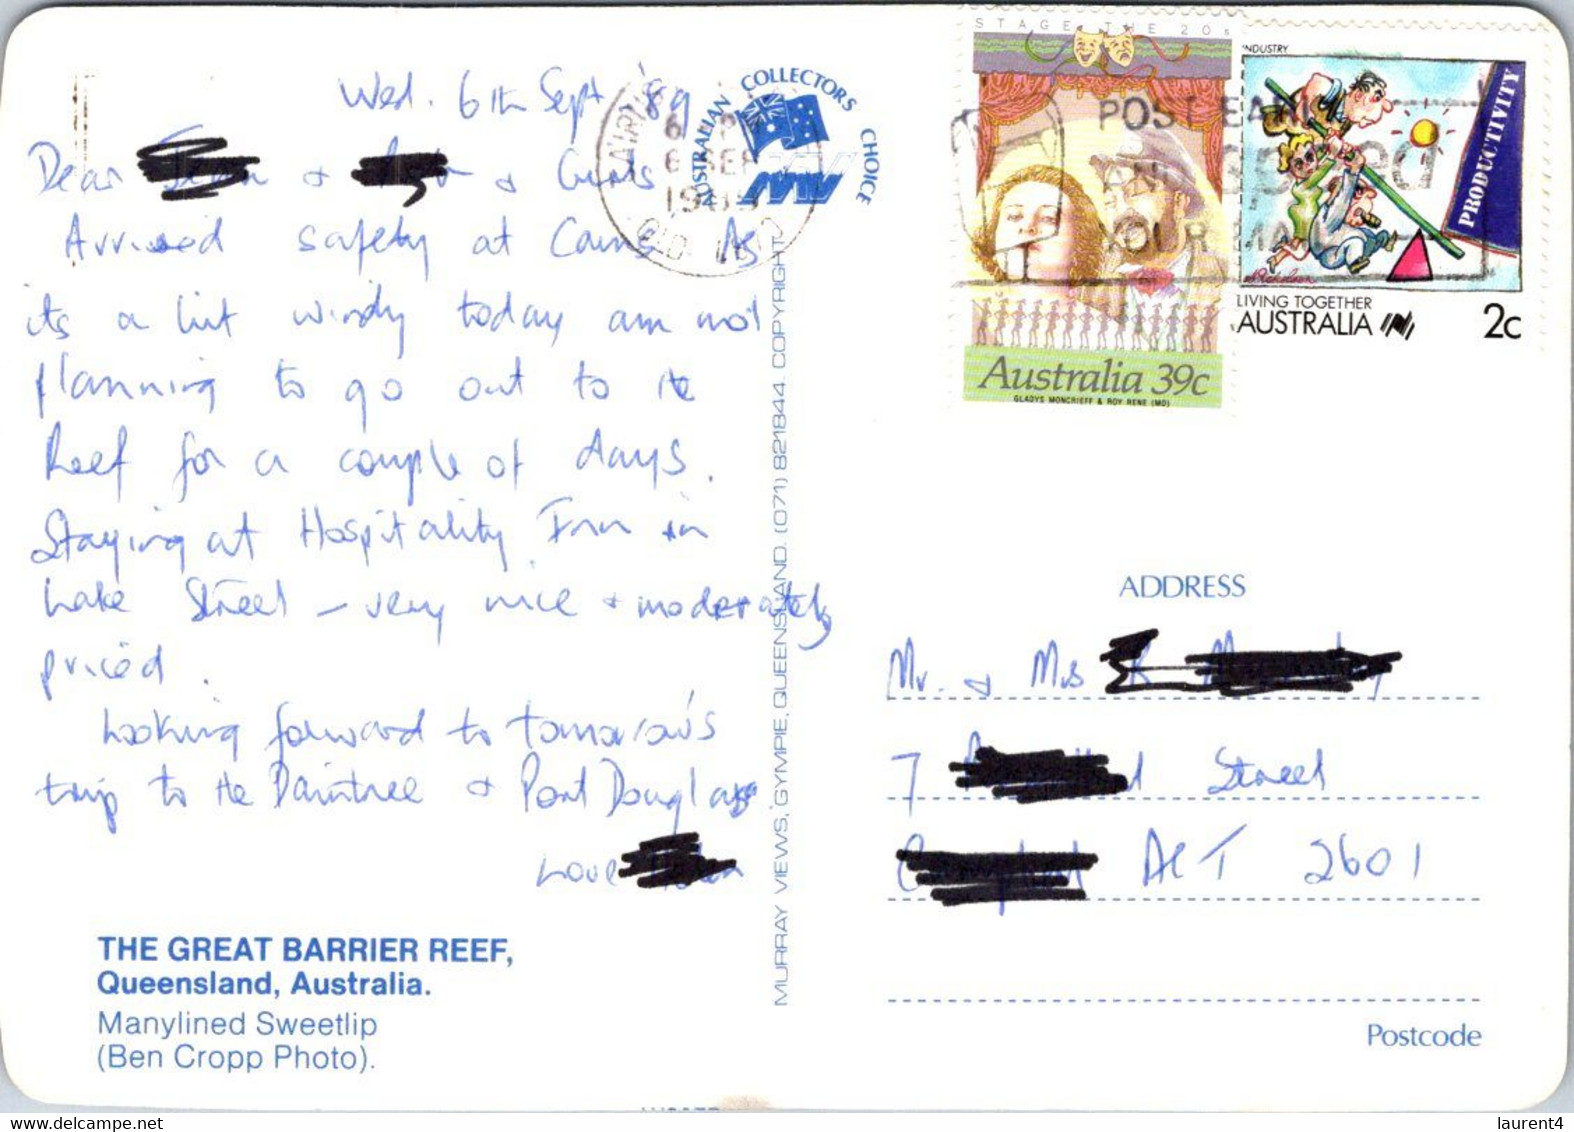 Wed. 6th Sept '89
Dear & &
Arrived safety at Cairns As
its a bit windy today am not
planning to go out to the
Reef for a couple of days.
Staying at Hospitality Inn in
Lake Street – very nice & moderately
priced.
Looking forward to tomorrow's
trip to the Daintree & Port Douglas
Love
THE GREAT BARRIER REEF,
Queensland, Australia.
Manylined Sweetlip
(Ben Cropp Photo).
AUSTRALIAN COLLECTORS CHOICE
6 SEP
1989
QLD.
MURRAY VIEWS, GYMPIE, QUEENSLAND. (071) 821844 COPYRIGHT
STAGE THE 20s
Australia 39c
GLADYS MONCRIEFF & ROY RENE (MO)
POST EARLY
YOUR MAIL
INDUSTRY
PRODUCTIVITY
LIVING TOGETHER
AUSTRALIA 2c
ADDRESS
Mr. & Mrs
7 Street
ACT 2601
Postcode
laurent4